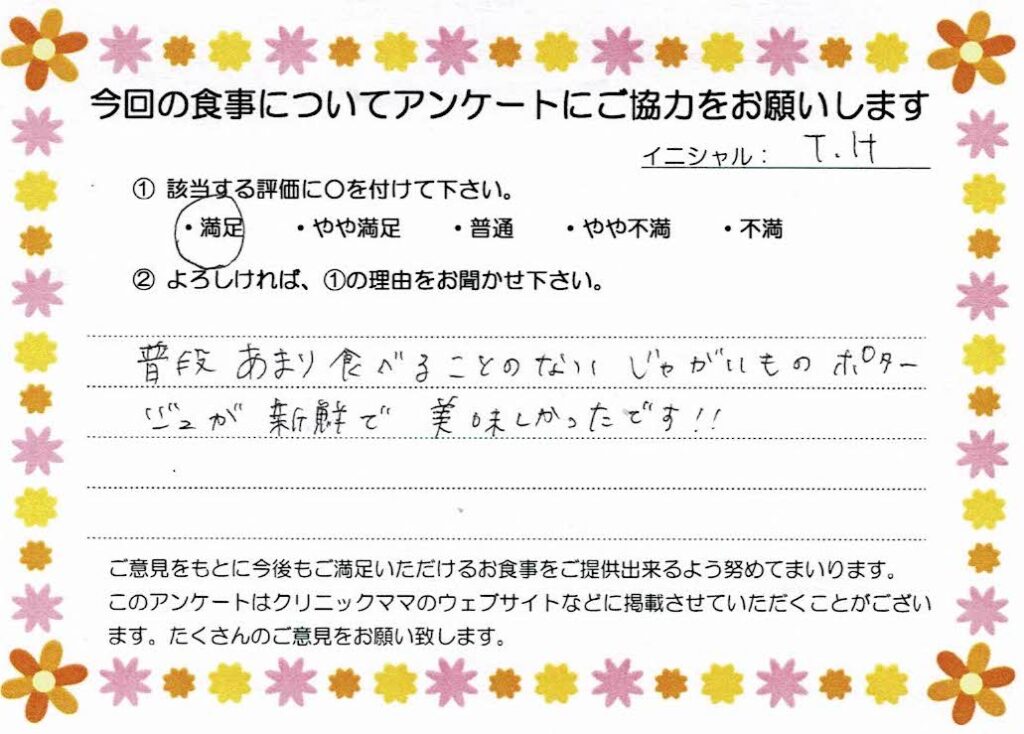 今回の食事についてアンケートにご協力をお願いします
イニシャル： T.H
① 該当する評価に〇を付けて下さい。
・満足 ・やや満足 ・普通 ・やや不満 ・不満
② よろしければ、①の理由をお聞かせ下さい。
普段 あまり食べることのない じゃがいものポター
ジュが 新鮮で 美味しかったです!!
ご意見をもとに今後もご満足いただけるお食事をご提供出来るよう努めてまいります。
このアンケートはクリニックママのウェブサイトなどに掲載させていただくことがござい
ます。たくさんのご意見をお願い致します。